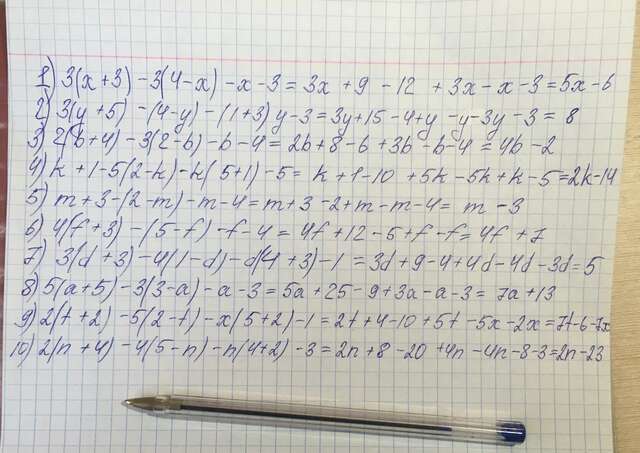 1) 3(x+3) -3(4-x) -x -3 = 3x +9 -12 +3x -x -3 = 5x -6
2) 3(y+5) -(4-y) -(1+3)y -3 = 3y+15 -4+y -y -3y -3 = 8
3) 2(b+4) -3(2-b) -b -4 = 2b+8 -6 +3b -b -4 = 4b -2
4) k +1 -5(2-k) -k(5+1) -5 = k +1 -10 +5k -5k +k -5 = 2k -14
5) m+3 -(2-m) -m -4 = m+3 -2+m -m -4 = m -3
6) 4(f+3) -(5-f) -f -4 = 4f +12 -5 +f -f = 4f +7
7) 3(d+3) -4(1-d) -d(4+3) -1 = 3d+9 -4 +4d -4d -3d = 5
8) 5(a+5) -3(3-a) -a -3 = 5a +25 -9 +3a -a -3 = 7a +13
9) 2(t+2) -5(2-t) -x(5+2) -1 = 2t +4 -10 +5t -5x -2x = 7t -6 -7x
10) 2(n+4) -4(5-n) -n(4+2) -3 = 2n +8 -20 +4n -4n -8 -3 = 2n -23